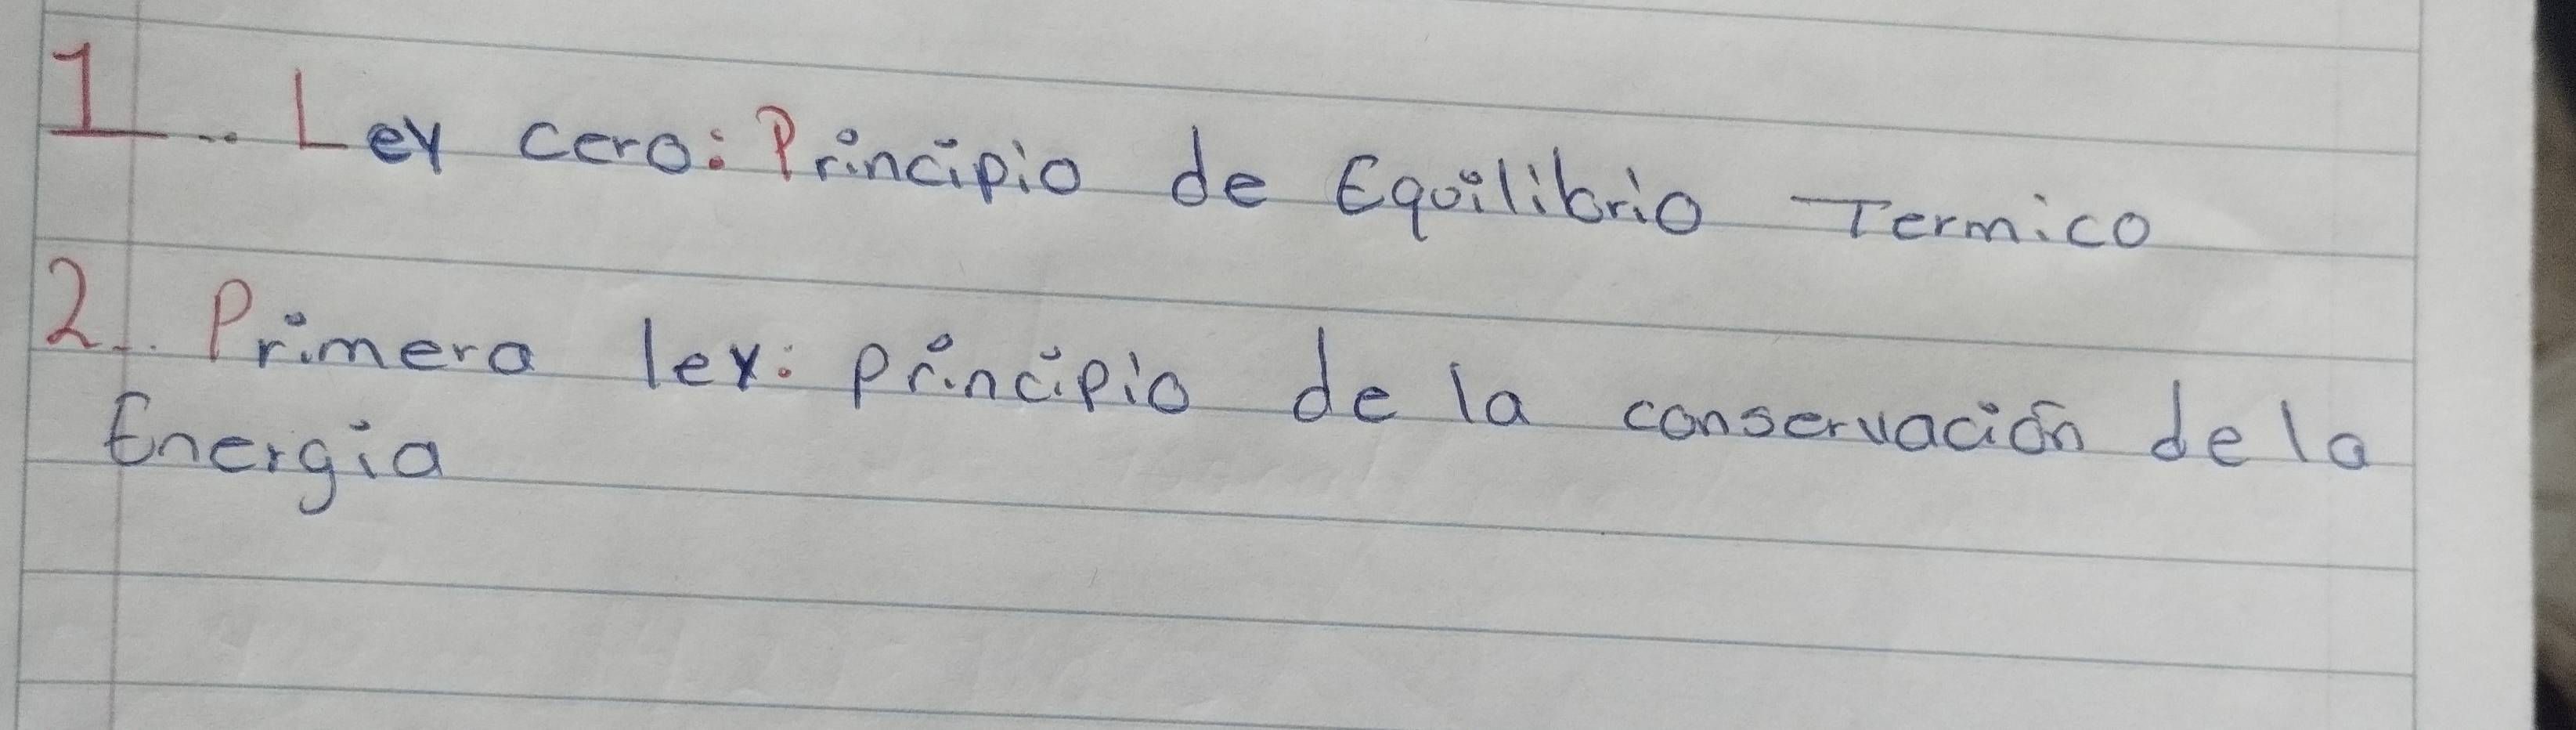 1.. Ley cero: Principio de Equilibrio Termico
2.. Primera ley: principio de la conservación de la
Energia